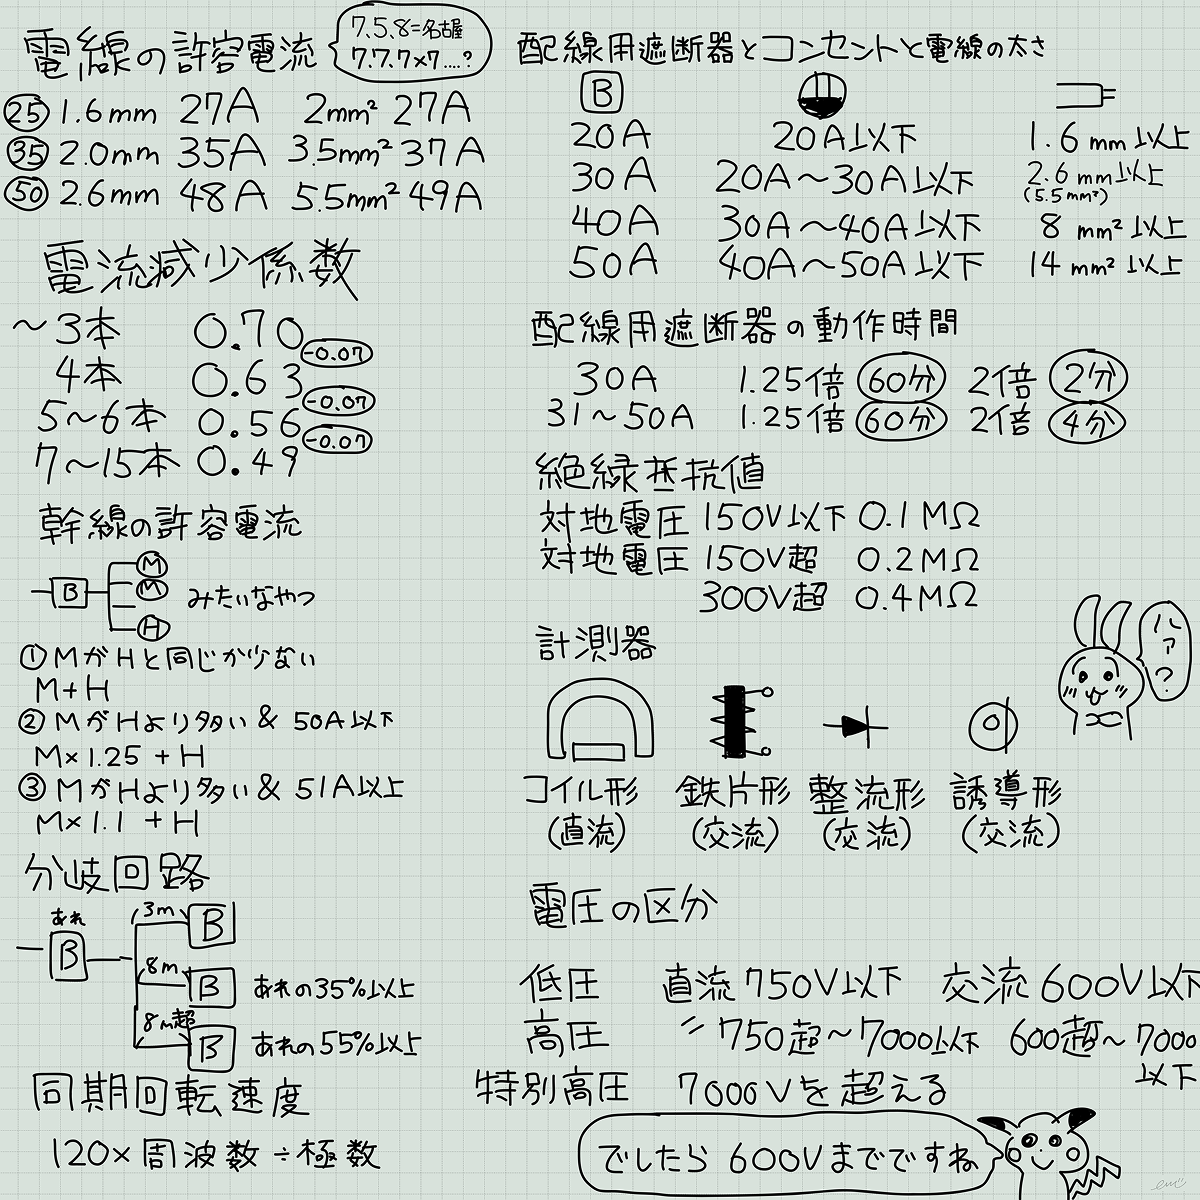 電線の許容電流
7.5.8=名古屋
7.7.7×7....?
25 1.6mm 27A 2mm² 27A
35 2.0mm 35A 3.5mm² 37A
50 2.6mm 48A 5.5mm² 49A
電流減少係数
～3本 0.70
-0.07
4本 0.63
-0.07
5～6本 0.56
-0.07
7～15本 0.49
幹線の許容電流
B M M H みたいなやつ
① MがHと同じか少ない
M+H
② MがHより多い & 50A以下
M×1.25+H
③ MがHより多い & 51A以上
M×1.1+H
分岐回路
あれ
B
3m B
8m B あれの35%以上
8m超 B あれの55%以上
同期回転速度
120×周波数÷極数
配線用遮断器とコンセントと電線の太さ
B
20A 20A以下 1.6mm以上
30A 20A～30A以下 2.6mm以上
(5.5mm²)
40A 30A～40A以下 8mm²以上
50A 40A～50A以下 14mm²以上
配線用遮断器の動作時間
30A 1.25倍 60分 2倍 2分
31～50A 1.25倍 60分 2倍 4分
絶縁抵抗値
対地電圧 150V以下 0.1MΩ
対地電圧 150V超 0.2MΩ
300V超 0.4MΩ
計測器
ハァ?
コイル形 鉄片形 整流形 誘導形
(直流) (交流) (交流) (交流)
電圧の区分
低圧 直流750V以下 交流600V以下
高圧 〃 750超～7000以下 600超～7000
以下
特別高圧 7000Vを超える
でしたら 600Vまでですね